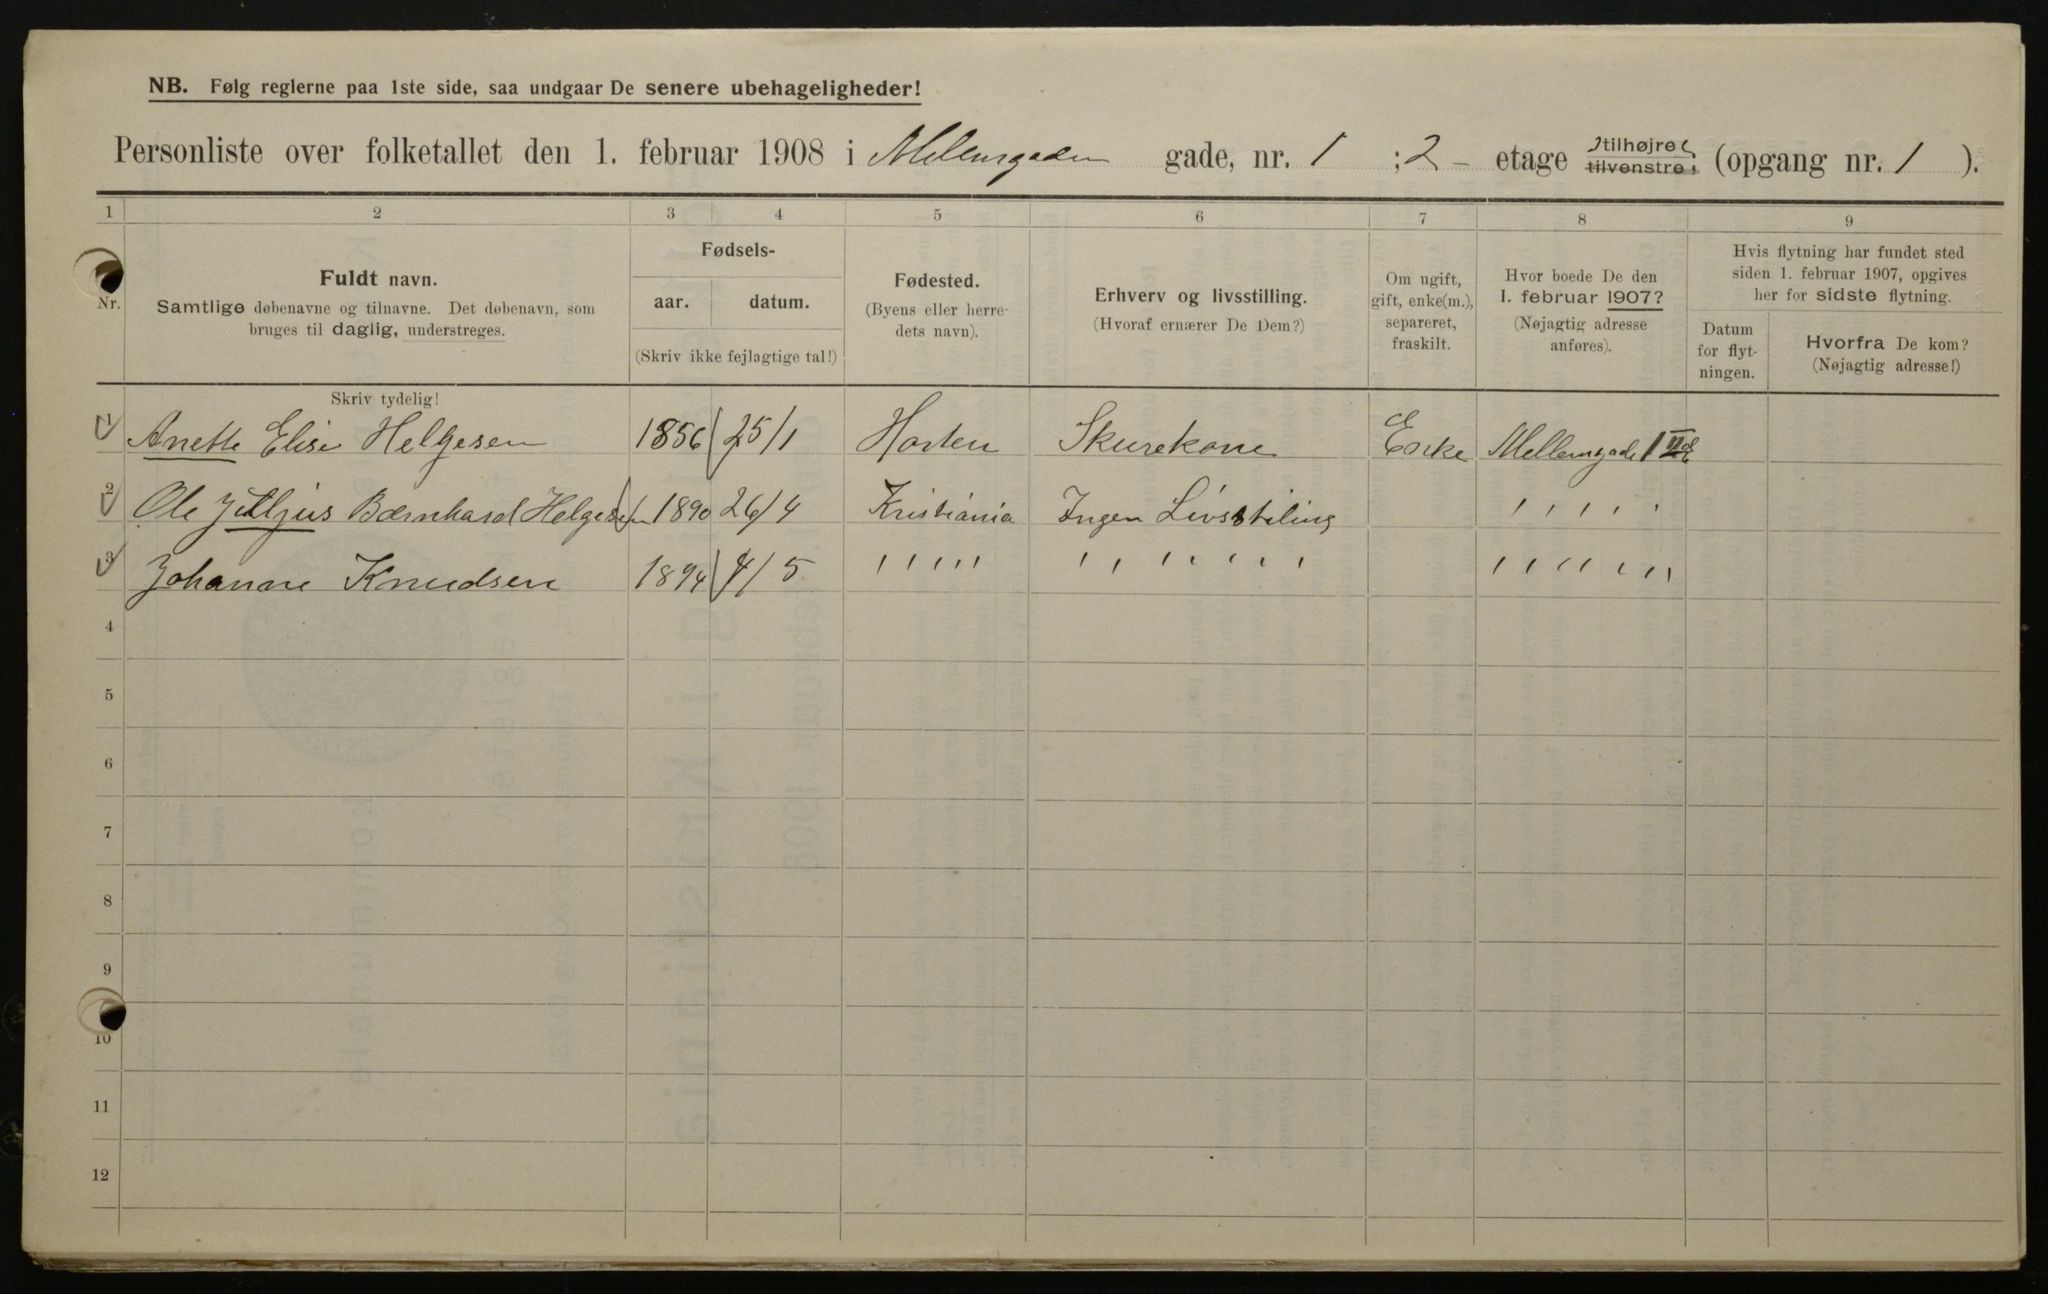 NB. Følg reglerne paa 1ste side, saa undgaar De senere ubehageligheder!
Personliste over folketallet den 1. februar 1908 i Mellemgaden gade, nr. 1 ; 2 - etage tilhøjre tilvenstre; (opgang nr. 1 ).
1 2 3 4 5 6 7 8 9
Nr.
Fuldt navn.
Samtlige døbenavne og tilnavne. Det døbenavn, som
bruges til daglig, understreges.
Fødsels-
aar. datum.
(Skriv ikke fejlagtige tal!)
Fødested.
(Byens eller herre-
dets navn).
Erhverv og livsstilling.
(Hvoraf ernærer De Dem?)
Om ugift,
gift, enke(m.),
separeret,
fraskilt.
Hvor boede De den
1. februar 1907?
(Nøjagtig adresse
anføres).
Hvis flytning har fundet sted
siden 1. februar 1907, opgives
her for sidste flytning.
Datum
for flyt-
ningen.
Hvorfra De kom?
(Nøjagtig adresse!)
Skriv tydelig!
1 Anette Elise Helgesen 1856 25/1 Horten Skurekone e Enke Mellemgade 1 II
2 Ole Julljus Bærnhard Helgesen 1890 26/4 Kristiania Ingen Livsstiling ' ' ' ' '
3 Johanne Knudsen 1894 4/5 ' ' ' ' ' ' ' ' ' ' ' ' ' ' ' ' ' '
4
5
6
7
8
9
10
11
12